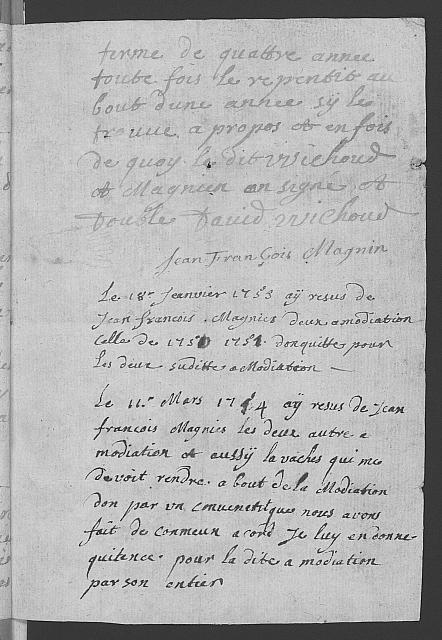 terme de quattre annee
toute fois le repentit au
bout dune annee sÿ le
trouue a propos et en fois
de quoy le dit Michoud
et Magnien on signé et
double David Michoud
Jean François Magnin
Le 18e Jeanvier 1753 aÿ resus de
Jean francois Magnies deux amodiation
Celle de 1750 1751 donquitte pour
les deux suditte amodiation —
Le 11e Mars 1754 aÿ resus de Jean
françois Magnies les deux autre a
modiation et aussÿ la vaches qui me
devoit rendre a bout de la Modiation
don par vn nous avons
fait de conmeun acord Je luy en donne
quitence pour la dite a modiation
par son entier